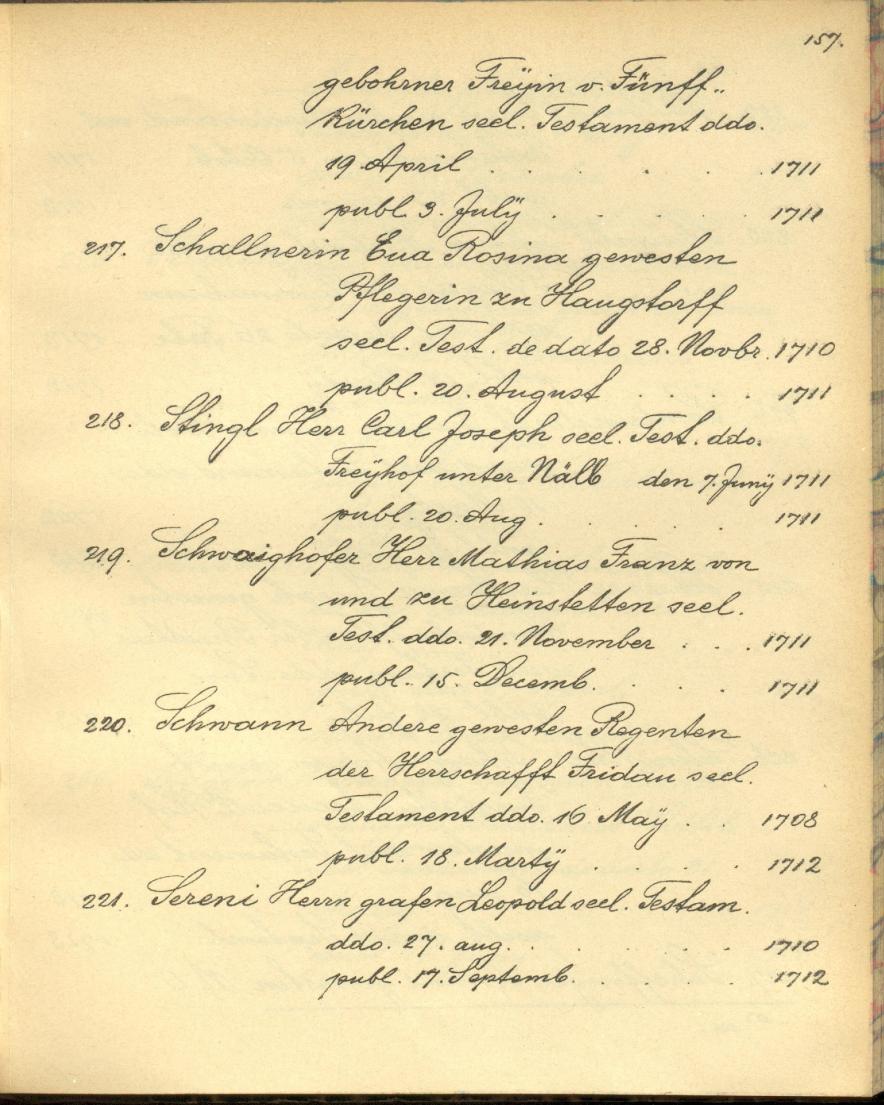 157.
gebohrner Freÿin v. Fünff„
Kürchen seel. Testament ddo.
19 April . . . . . 1711
publ. 3. Julÿ . . . . 1711
217. Schallnerin Eua Rosina gewesten
Pflegerin zu Haugstorff
seel. Test. de dato 28. Novbr. 1710
publ. 20. August . . . . 1711
218. Stingl Herr Carl Joseph seel. Test. ddo.
Freÿhof unter Nälb den 7. Junÿ 1711
publ. 20. Aug. . . . . 1711
219. Schwaighofer Herr Mathias Franz von
und zu Heinstetten seel.
Test. ddo. 21. November . . . 1711
publ. 15. Decemb. . . . . 1711
220. Schwann Andere gewesten Regenten
der Herrschafft Fridau seel.
Testament ddo. 16 Maÿ . . 1708
publ. 18. Martÿ . . . . . 1712
221. Sereni Herrn grafen Leopold seel. Testam.
ddo. 27. aug. . . . . . 1710
publ. 17. Septemb. . . . . 1712